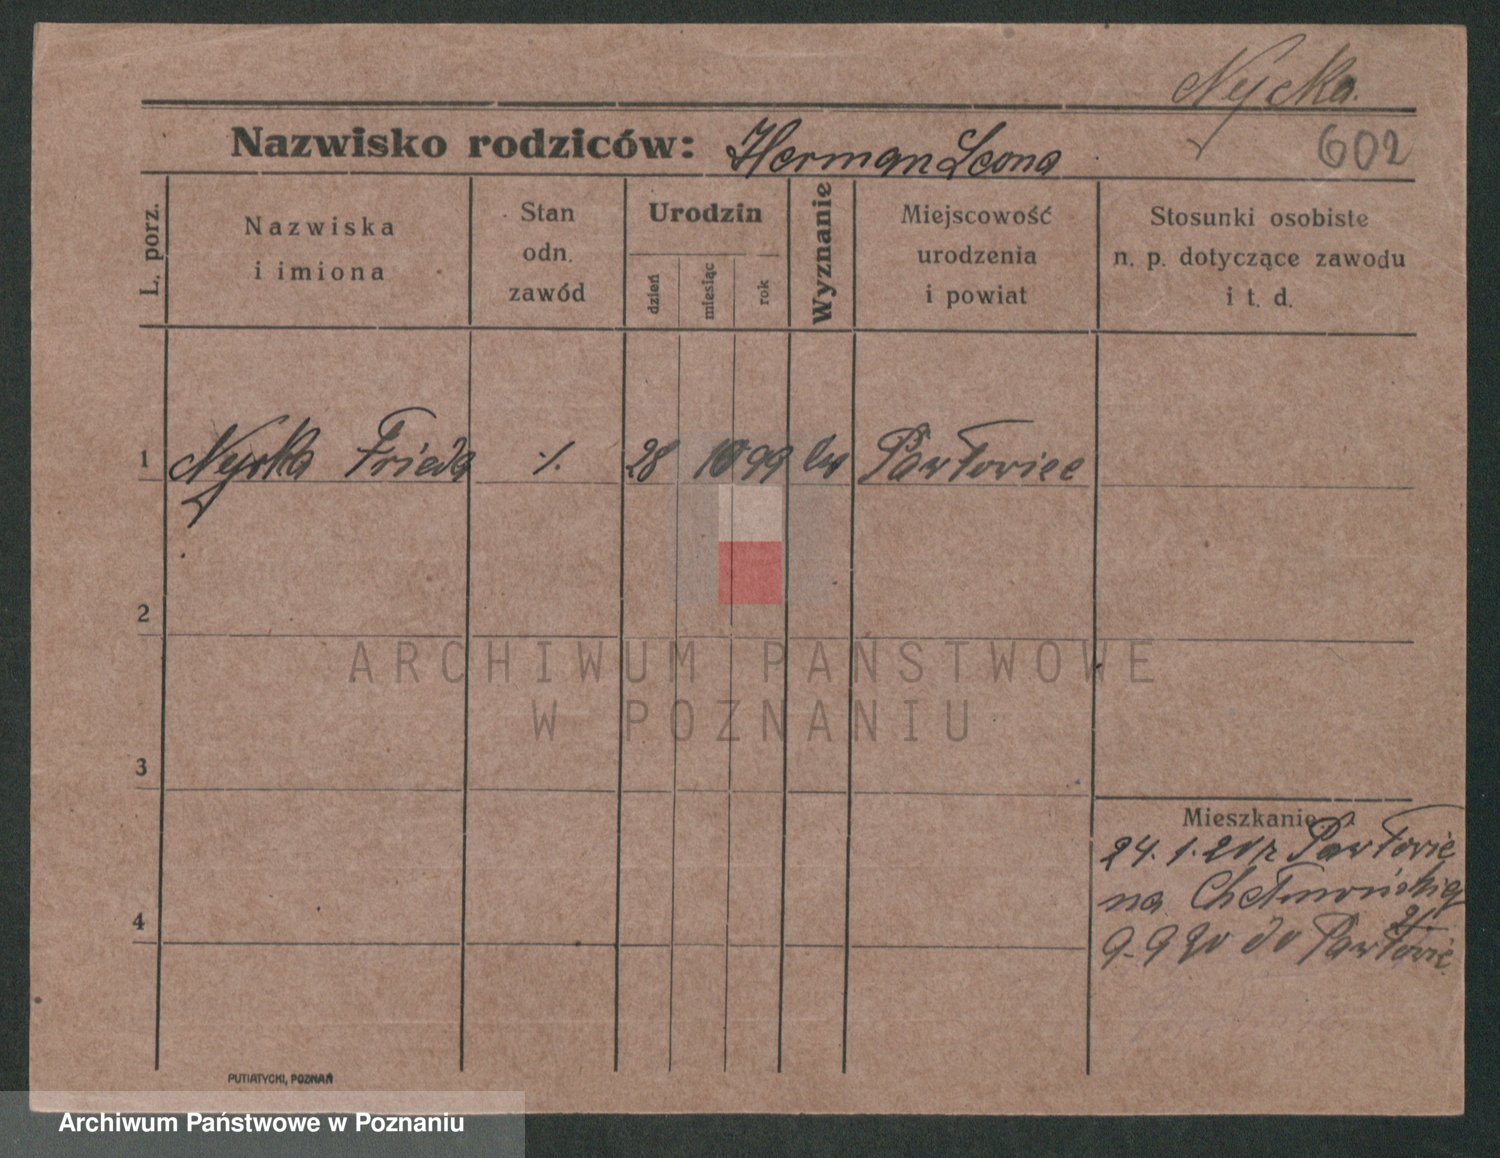 Nycka.
602
Nazwisko rodziców: Herman Leona
L. porz.
Nazwiska
i imiona
Stan
odn.
zawód
Urodzin
dzień
miesiąc
rok
Wyznanie
Miejscowość
urodzenia
i powiat
Stosunki osobiste
n. p. dotyczące zawodu
i t. d.
1 Nycka Frieda ·/. 28 10 99 ew Pawłowice
2
3
4
Mieszkanie
24. 1. 20 z Pawłowic
na Chełmońskiego
21.
9-9 20 do Pawłowic
PUTIATYCKI, POZNAŃ
ARCHIWUM PAŃSTWOWE
W POZNANIU
Archiwum Państwowe w Poznaniu